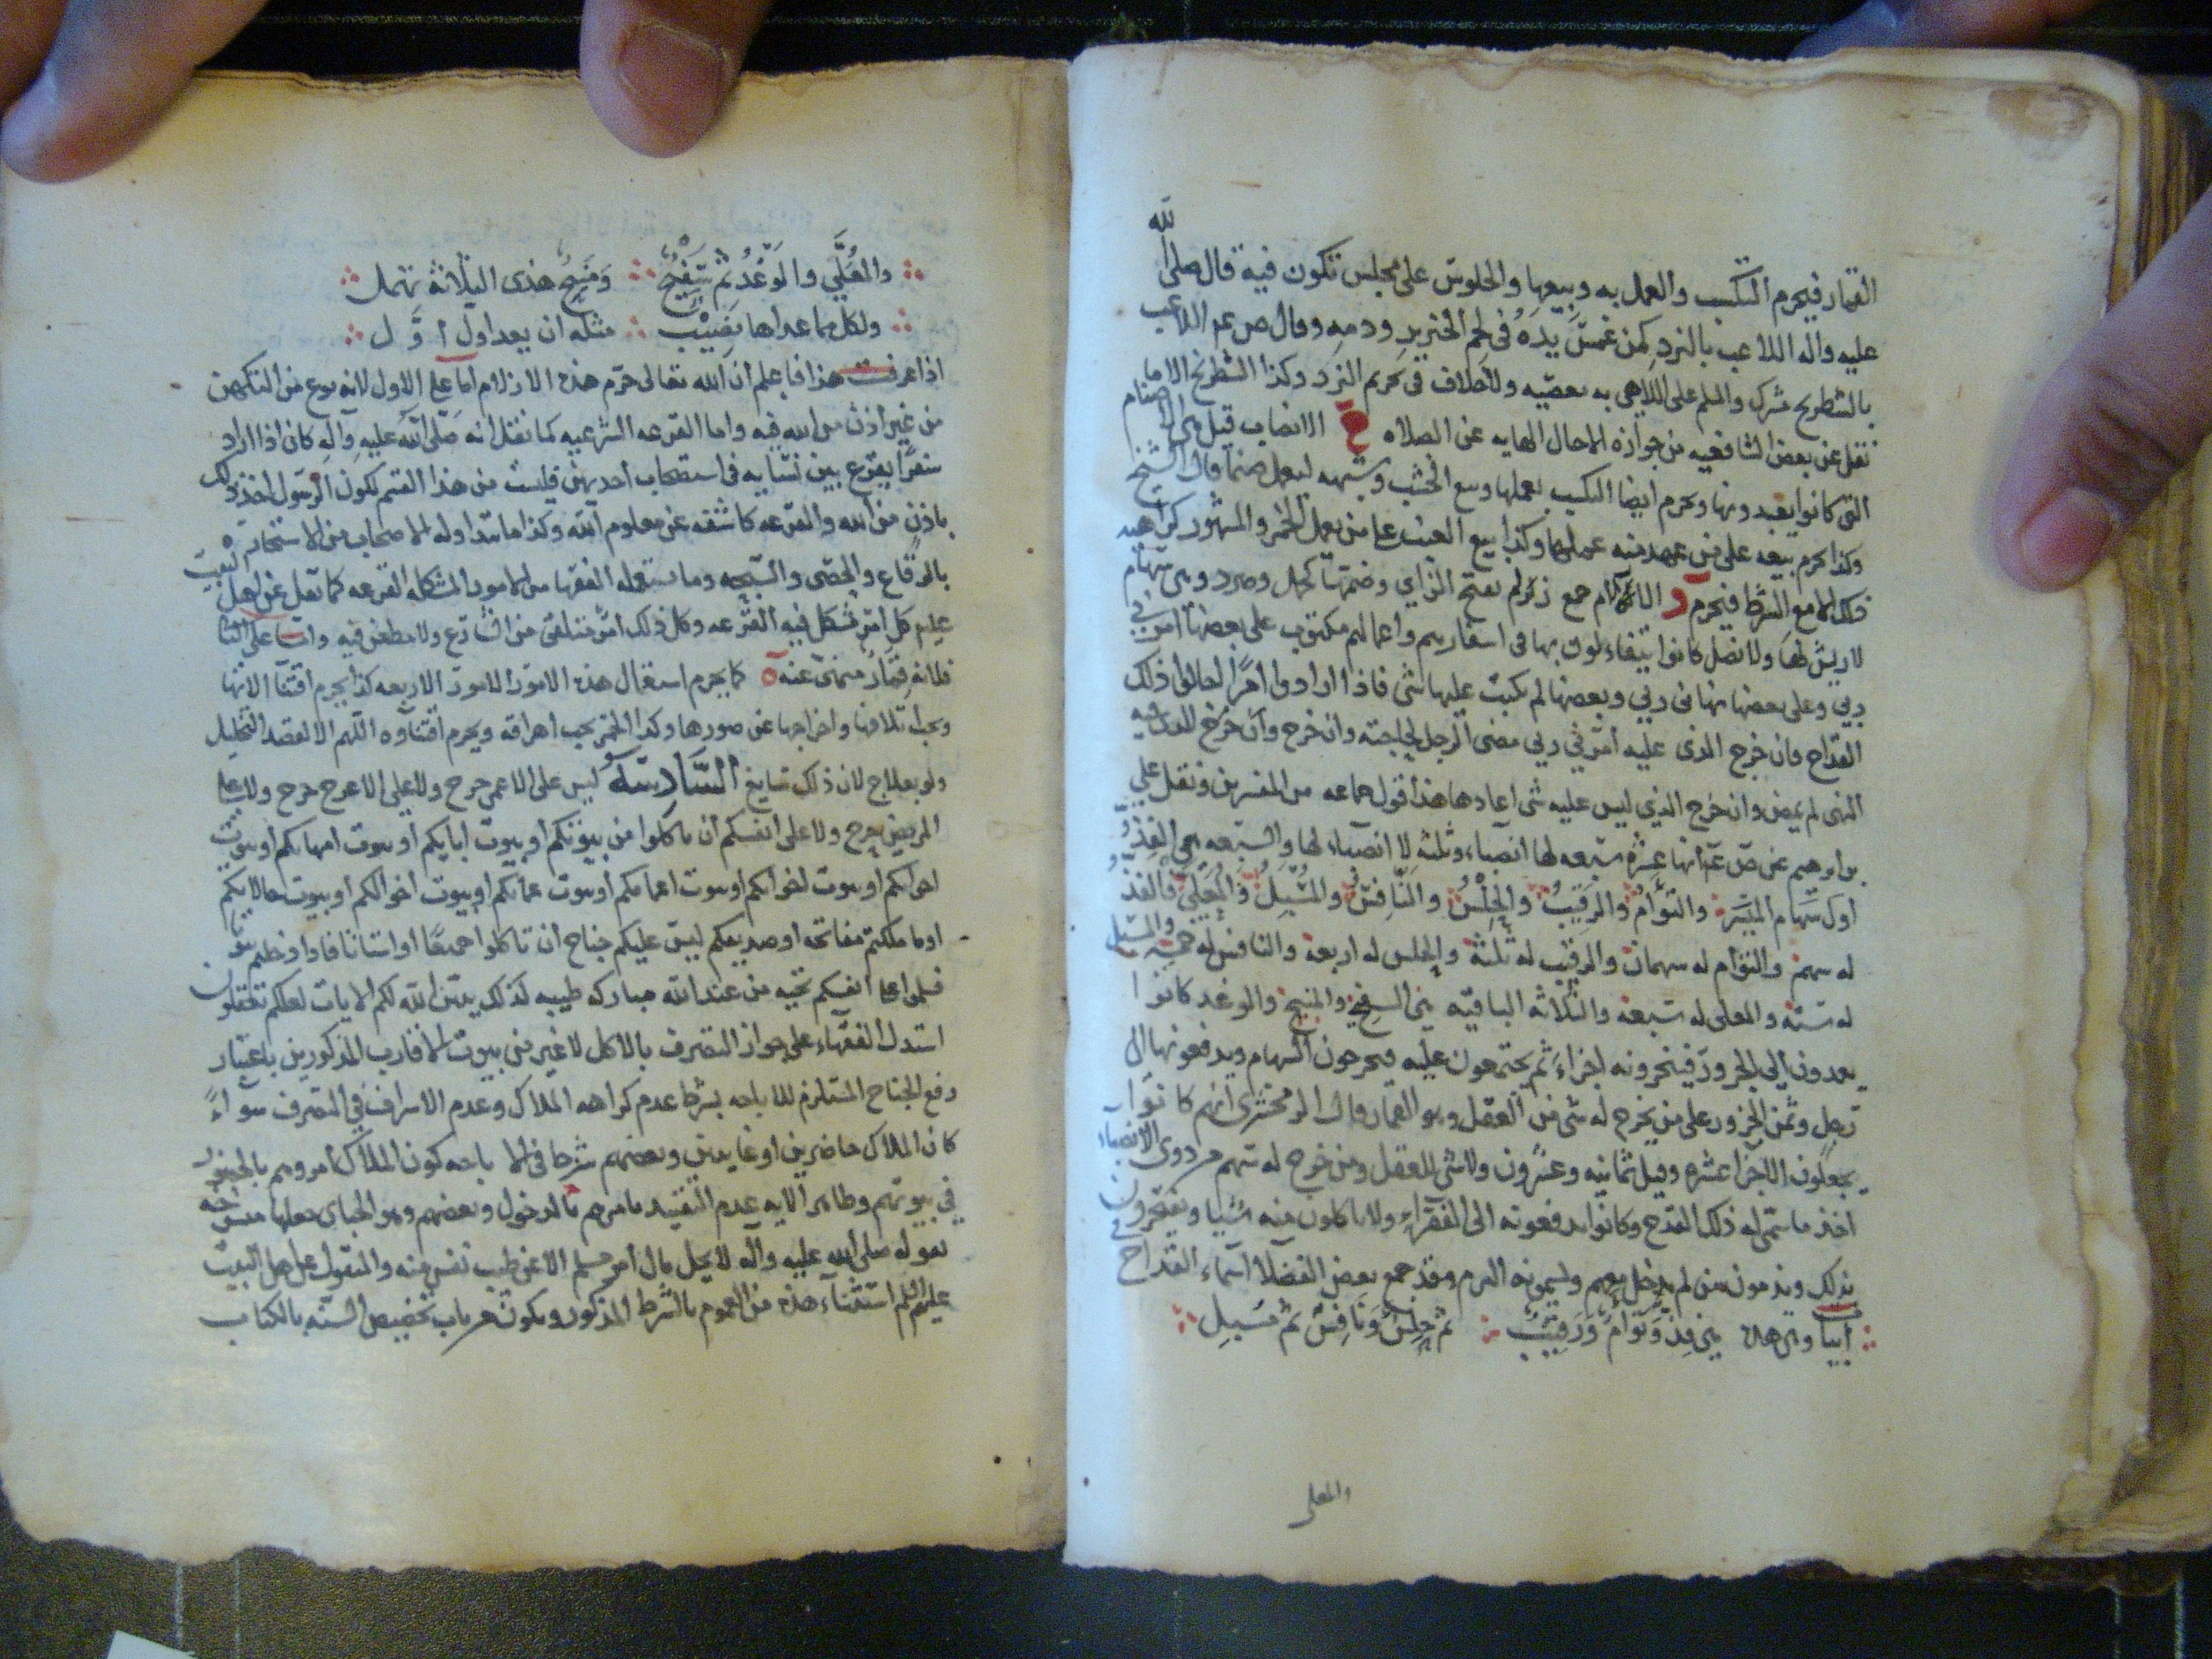 القمار فيحرم التكسب والعمل به وبيعها والجلوس على مجلس تكون فيه قال صلى الله
عليه وآله اللاعب بالنرد كمن غمس يده في لحم الخنزير ودمه وقال ص ع م اللاعب
بالشطرنج مشرك والمسلم على اللاهي به معصيه ولا خلاف في تحريم النرد وكذا الشطرنج الا ما
نقل عن بعض الشافعيه من جوازه الا حال الهايه عن الصلاه ج الانصاب قيل هي الاصنام
التي كانوا يعبدونها ويحرم ايضا التكسب بعملها وبيع الخشب وشبهه ليعمل صنما قال الشيخ
وكذا يحرم بيعه على من عهد منه عملها وكذا بيع العنب على من يعمل الخمر والمشهور كراهه
ذلك الا مع الشرط فيحرم د الازلام جمع زلم بفتح الزاي وضمها كجمل وصرد وهي سهام
لا ريش لها ولا نصل كانوا يتفاءلون بها في اسفارهم واعمالهم مكتوب على بعضها امرني
ربي وعلى بعضها نهاني ربي وبعضها لم يكتب عليها شي فاذا ارادوا امرا اجالوا ذلك
القداح فان خرج الذي عليه أمرني ربي مضى الرجل لحاجته وان خرج وان خرج الذي فيه
النهي لم يمض وان خرج الذي ليس عليه شي اعادها هذا قول جماعه من المفسرين ونقل علي
بن ابرهيم عن ص ع أنها عشره سبعه لها انصباء وثلثه لا انصباء لها والسبعه هي الفذ
اول سهام الميسر والتوأم والرقيب والحلس والنافس والمسبل والمعلى فالفذ
له سهم والتوأم له سهمان والرقيب له ثلثة والحلس له اربعة والنافس له خمسه والمسبل
له ستة والمعلى له سبعة والثلاثه الباقيه هي السفيح والمنيح والوغد كانوا
يعمدون إلى الجزور فينحرونه اجزاء ثم يجتمعون عليه فيخرجون السهام ويدفعونها الى
رجل وثمن الجزور على من يخرج له شي من العقل وهو القمار وقال الزمخشري انهم كانوا
يجعلون الاجزا عشره وقيل ثمانيه وعشرون ولا شي للعقل ومن خرج له سهم من ذوي الانصباء
اخذ ما سمي له ذلك القدح وكانوا يدفعونه الى الفقراء ولا ياكلون منه شيئا ويفتخرون
بذلك ويذمون من لم يدخل معهم ويسمونه البرم وقد جمع بعض الفضلا اسماء القداح في
ابيات وهي هذه هي فذ وتوأم ورقيب ثم حلس ونافس ثم مسبل
والمعلى
والمعلى والوغد ثم سفيح ومنيح هذي الثلاثة تهمل
ولكل مما عداها نصيب مثله ان يعد اول أ و ل
اذا عرفت هذا فاعلم أن الله تعالى حرم هذه الازلام أما على الاول لانه نوع من التكهن
من غير أذن من الله فيه واما القرعه الشرعيه كما نقل انه صلى الله عليه وآله كان اذا اراد
سفرا يقرع بين نسايه في استصحاب أحديهن فليست من هذا القسم لكون الرسول اخذ ذلك
باذن من الله والقرعه كاشفه عن معلوم الله وكذا ما تداوله الاصحاب من الاستخارة
بالرقاع والحصى والسبحه وما يستعمله الفقها من الامور المشكله القرعه كما نقل عن اهل البيت
عليهم كل امر مشكل فيه القرعه وكل ذلك امر متلقى من الشارع ولا مطعن فيه وأما على الثا
فلانه قمار منهي عنه ه كما يحرم استعمال هذه الامور الامور الاربعه كذا يحرم اقتنآ الاتها
ويجب اتلافها واخراجها عن صورها وكذا الخمر يجب اهراقه ويحرم اقتناؤه اللهم الا لقصد التخليل
ولو بعلاج لان ذلك سايغ السادسة ليس على الاعمى حرج ولا على الاعرج حرج ولا على
المريض حرج ولا على أنفسكم أن تأكلوا من بيوتكم أو بيوت ابايكم أو بيوت امهاتكم او بيوت
اخوانكم او بيوت اخواتكم او بيوت اعمامكم أو بيوت عماتكم او بيوت أخوالكم أو بيوت خالاتكم
اوما ملكتم مفاتحه أو صديقكم ليس عليكم جناح أن تاكلوا جميعا أو اشتاتا فاذا دخلتم بيوتا
فسلموا على أنفسكم تحيه من عند الله مباركه طيبه كذلك يبين الله لكم الايات لعلكم تعقلون
استدل الفقهاء على جواز التصرف بالاكل لا غير من بيوت الاقارب المذكورين باعتبار
رفع الجناح المستلزم للاباحه بشرط عدم كراهه الملاك وعدم الاسراف في التصرف سواء
كان الملاك حاضرين او غايبين وبعضهم شرط في الاباحه كون الملاك أمروهم بالحضور
في بيوتهم وظاهر الايه عدم التقييد بامرهم بالدخول وبعضهم وهو الجباي جعلها منسوخه
بقوله صلى الله عليه وآله لا يحل مال أمر مسلم الا عن طيب نفس منه والمنقول عن اهل البيت
عليهم السلم استثناء هذه من العموم بالشرط المذكور ويكون من باب تخصيص السنه بالكتاب